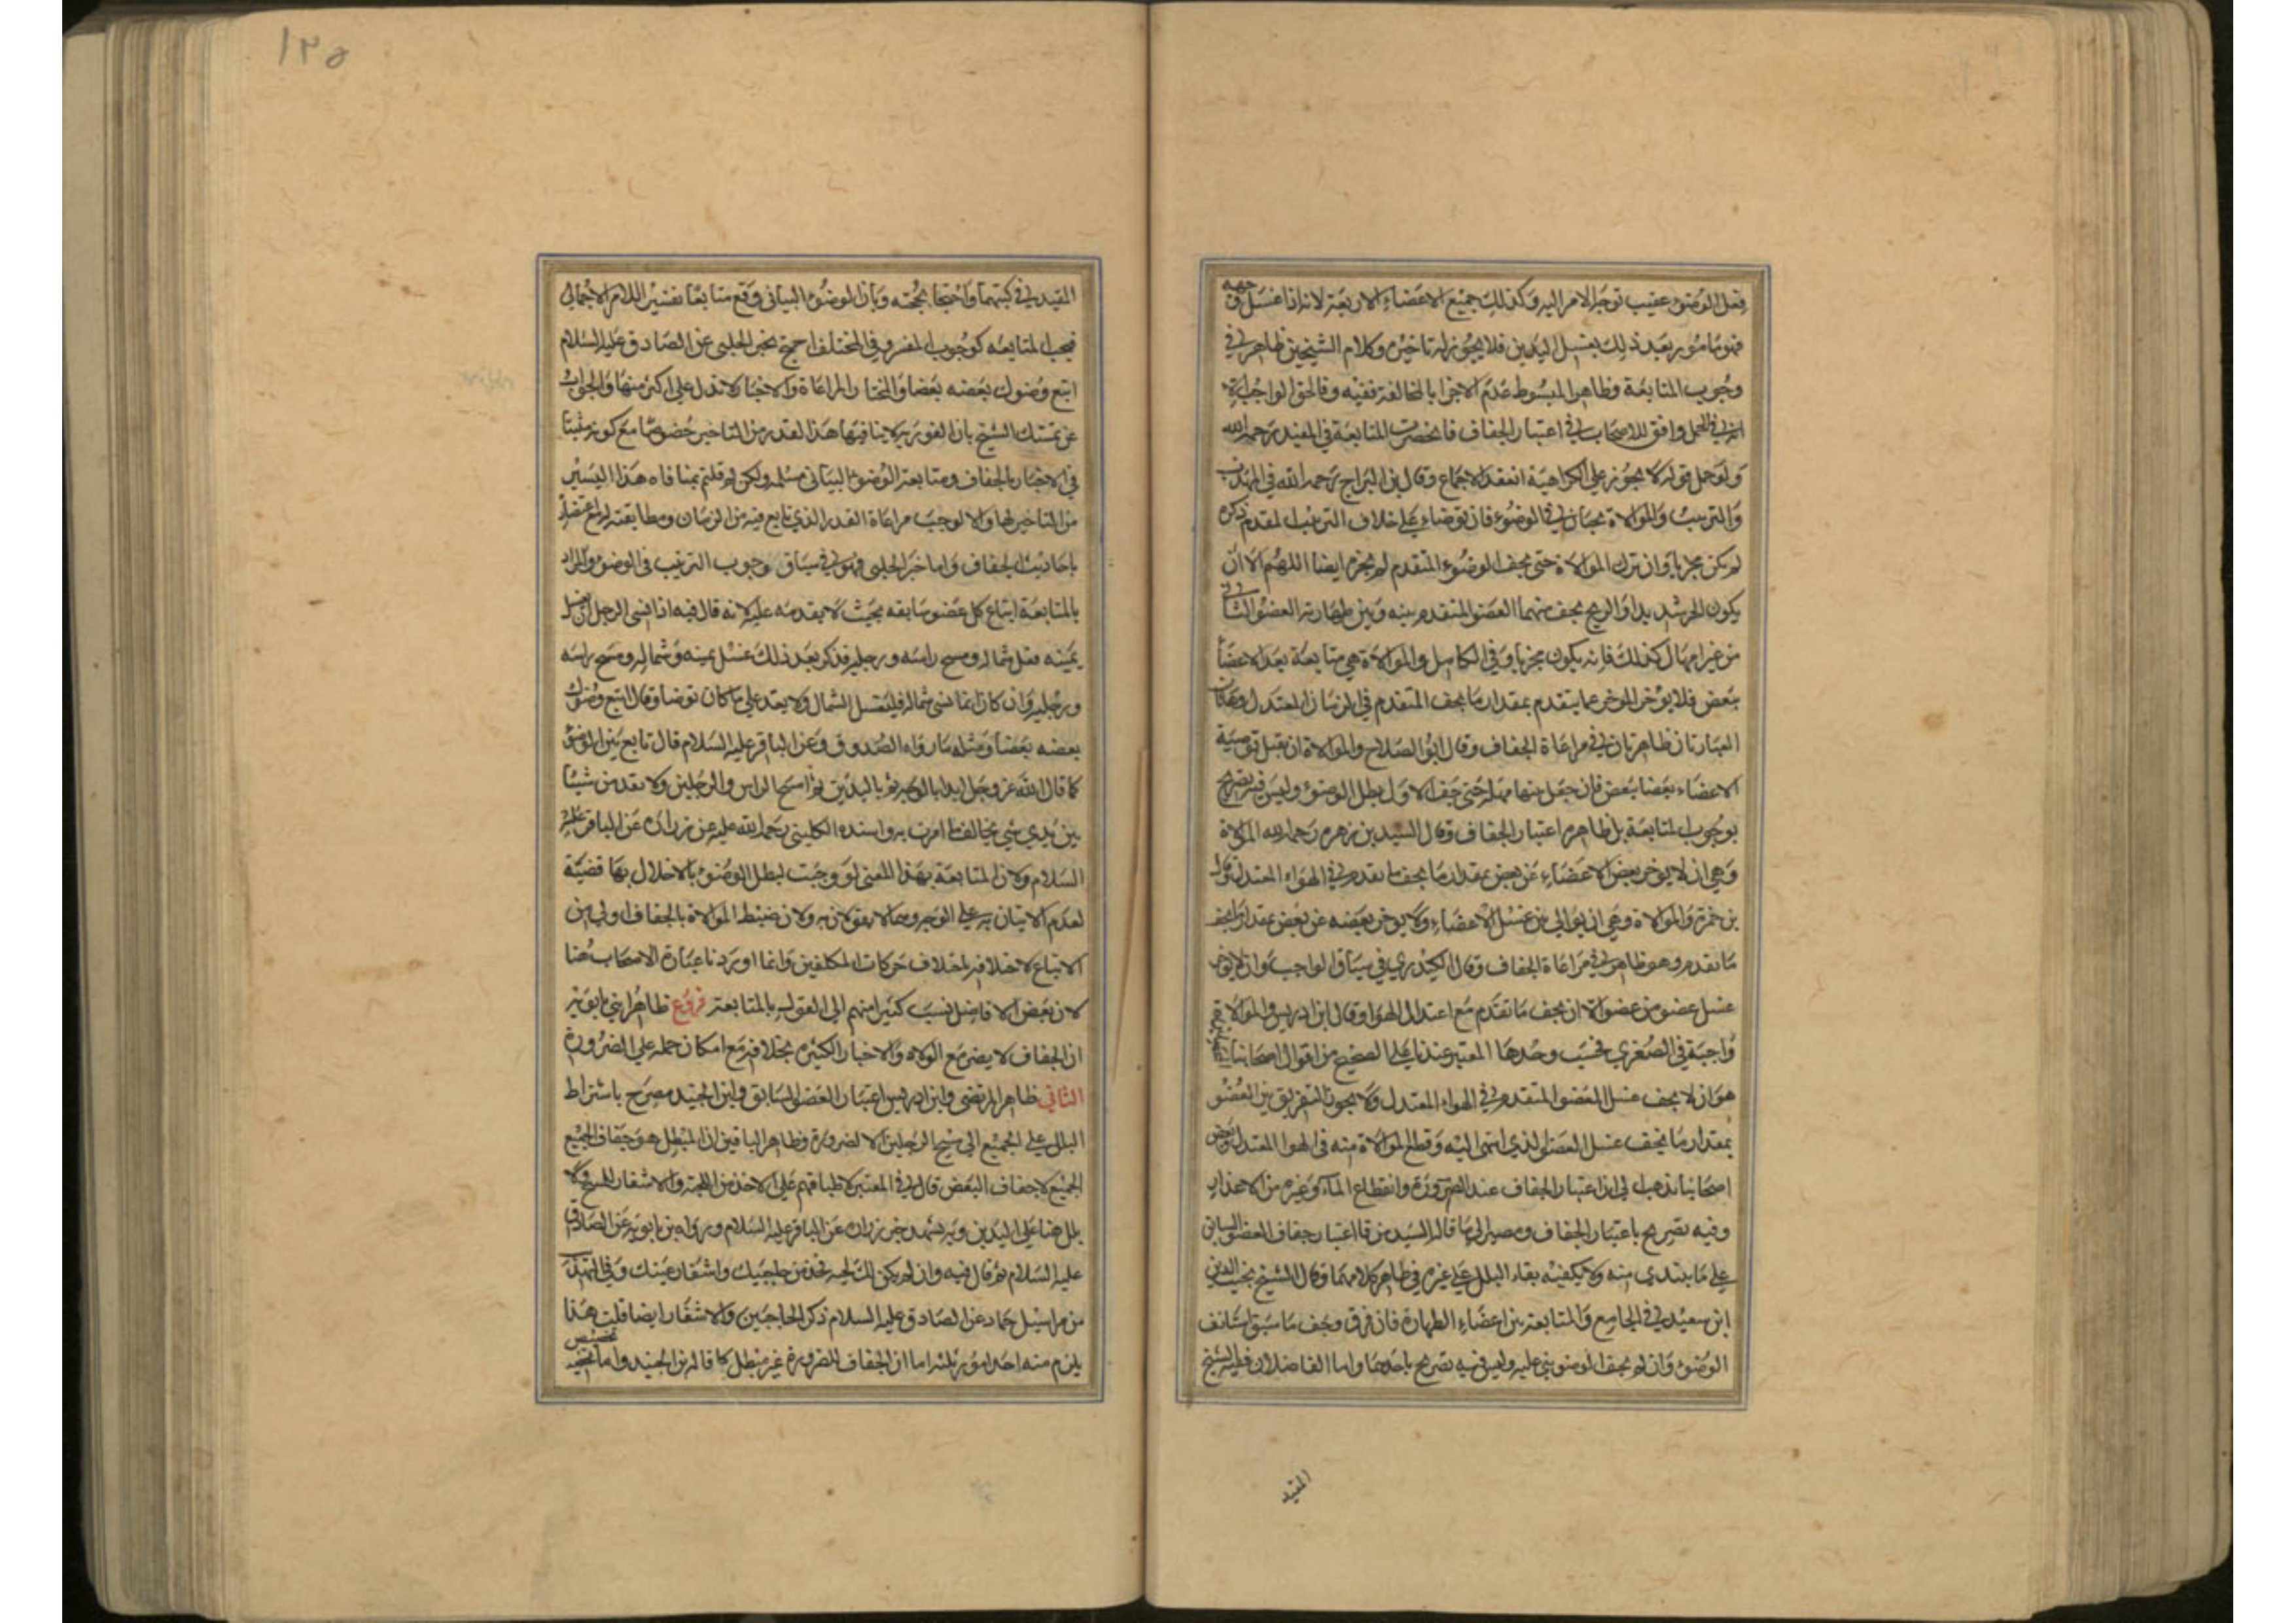 فعل الوضوء عقيب توجه الامر اليه وكذلك جميع الاعضاء الاربعة لانه اذا غسل وجهه
فهو مامور بعد ذلك بغسل اليدين فلا يجوز له تاخيره وكلام الشيخين ظاهر في
وجوب المتابعة وظاهر المبسوط عدم الاجزا بالمخالفة ففيه وفا لحق الواجب
في الجمل وافق الاصحاب في اعتبار الجفاف فانحصرت المتابعة في المفيد رحمه الله
ولو حمل قوله لا يجوز على الكراهية انعقد الاجماع وقال ابن البراج رحمه الله في المهذب
والترتيب والموالاة يجبان في الوضوء فان توضاء على خلاف الترتيب المقدم ذكره
لم يكن مجزيا وان ترك الموالاة حتى يجف الوضوء المتقدم لم يجزه ايضا اللهم الا ان
يكون الحر شديدا والريح يجف منهما العضو المتقدم بينه وبين طهارته العضو الثاني
من غير امهال كذلك فانه يكون مجزيا وفي الكامل والموالاة هي متابعة بعد الاعضا
ببعض فلا يؤخر المؤخر عما يتقدم بمقدار ما يجف المتقدم في الزمان المعتدل وهاتان
العبارتان ظاهرتان في مراعاة الجفاف وقال ابو الصلاح والموالاة ان تصل توضية
الاعضاء بعضا ببعض فان جعل بينها مهلة حتى جف الاول بطل الوضوء وليس فيه تصريح
بوجوب المتابعة بل ظاهره اعتبار الجفاف وقال السيد بن زهره رحمه الله الموالاة
وهي ان لا يؤخر بعض الاعضاء عن بعض بمقدار ما يجف ما تقدم في الهواء المعتدل وقال
بن حمزة والموالاة وهي ان يوالي بين غسل الاعضاء ولا يؤخر بعضه عن بعض بمقدار ما يجف
ما تقدم وهو ظاهر في مراعاة الجفاف وقال الكيدري في سياق الواجب وان لا يؤخر
غسل عضو من عضو الا ان يجف ما تقدم مع اعتدال الهوا وقال ابن ادريس والموالاة
واجبة في الصغرى فحسب وحدها المعتبر عندنا على الصحيح من اقوال اصحابنا
هو ان لا يجف غسل العضو المتقدم في الهواء المعتدل ولا يجوز التفريق بين العضو
بمقدار ما يجف غسل العضو الذي انتهى اليه وقطع الموالاة منه في الهوا المعتدل وبعض
اصحابنا يذهب الى ان اعتبار الجفاف عند الضرورة وانقطاع الماء وغيره من الاعذار
وفيه تصريح باعتبار الجفاف ومصير الى ما قاله السيد من اعتبار جفاف العضو السابق
على ما يبتدى منه ولا يكفيه بقاء البلل على غيره في ظاهر كلامهما وقال الشيخ نجيب الدين
ابن سعيد في الجامع والمتابعة بين اعضاء الطهارة فان فرق وجف ما سبق استانف
الوضوء وان لم يجف الوضوء بنى عليه وليس فيه تصريح باحدهما واما الفاضلان فظيّر الشيخ
المفيد
١٢٥
المفيد في كتبهما واحتجا بحجته وبان الوضوء البياني وقع متابعا تفسير اللامر الاجمالي
فيجب المتابعه كوجوب المفسر وفي المختلف احتج بخبر الحلبي عن الصادق عليه السلام
اتبع وضوءك بعضه بعضا والمختار المراعاة والاخبار لا تدل على اكثر منها والجواب
عن تمسك الشيخ بان الفورية لا ينافيها هذا القدر من التاخير خصوصا مع كونه مثبتا
في الاخبار بالجفاف ومتابعة الوضوء البياني مسلمه ولكن لم قلتم بمنافاه هذا اليسير
من التاخير لها والا لوجب مراعاة القدر الذي تابع فيه من الزمان ومطابقته له مع اعتضاد
باحاديث الجفاف واما خبر الحلبي فهو في سياق وجوب الترتيب في الوضوء والمراد
بالمتابعة اتباع كل عضو سابقه بحيث لا يقدمه عليه لانه قال فيه اذا انسى الرجل ان يغسل
يمينه فغسل شماله ومسح راسه ورجليه فذكر بعد ذلك غسل يمينه وشماله ومسح راسه
ورجليه وان كان انما نسي شماله فليغسل الشمال ولا يعد على ما كان توضا وقال اتبع وضوءك
بعضه بعضا ومثله ما رواه الصدوق وعن الباقر عليه السلام قال تابع بين الوضوء
كما قال الله عز وجل ابدا بالوجه ثم باليدين ثم امسح الراس والرجلين ولا تقدمن شيئا
بين يدي شي تخالف ما امرت به واسنده الكليني رحمه الله عليه عن زراره عن الباقر عليه
السلام ولان المتابعة بهذا المعنى لو وجبت لبطل الوضوء بالاخلال بها قضية
لعدم الاتيان به على الوجه وهما لا يقولان به ولان ضبط الموالاة بالجفاف اولى من
الاتباع لاختلافه باختلاف حركات المكلفين وانما اوردنا عبارة الاصحاب هنا
لان بعض الافاضل نسب كثيرا منهم الى القول بالمتابعة فروع ظاهر ابني بابويه
ان الجفاف لا يضر مع الولاه والاخبار الكثيره بخلافه مع امكان حمله على الضرورة
الثاني ظاهر المرتضى وابن ادريس اعتبار العضو السابق وابن الجنيد مصرح باشتراط
البلل على الجميع الى مسح الرجلين الا لضرورة وظاهر الباقين ان المبطل هو جفاف الجميع
الجميع لا جفاف البعض قال في المعتبر لاطباقهم على الاخذ من اللحية والاشفار للمسح ولا
بلل هنا على اليدين وبه يشهد خبر زراره عن الباقر عليه السلام ورواه بن بابويه عن الصادق
عليه السلام ثم قال فيه وان لم يكن لك لحية فخذ من حاجبيك واشفار عينك وفي التهذيب
من مراسيل حماد عن الصادق عليه السلام ذكر الحاجبين والاشفار ايضا قلت هذا
يلزم منه احد امور ثلثة اما ان الجفاف للضرورة غير مبطل كما قاله بن الجنيد واما تخصيص